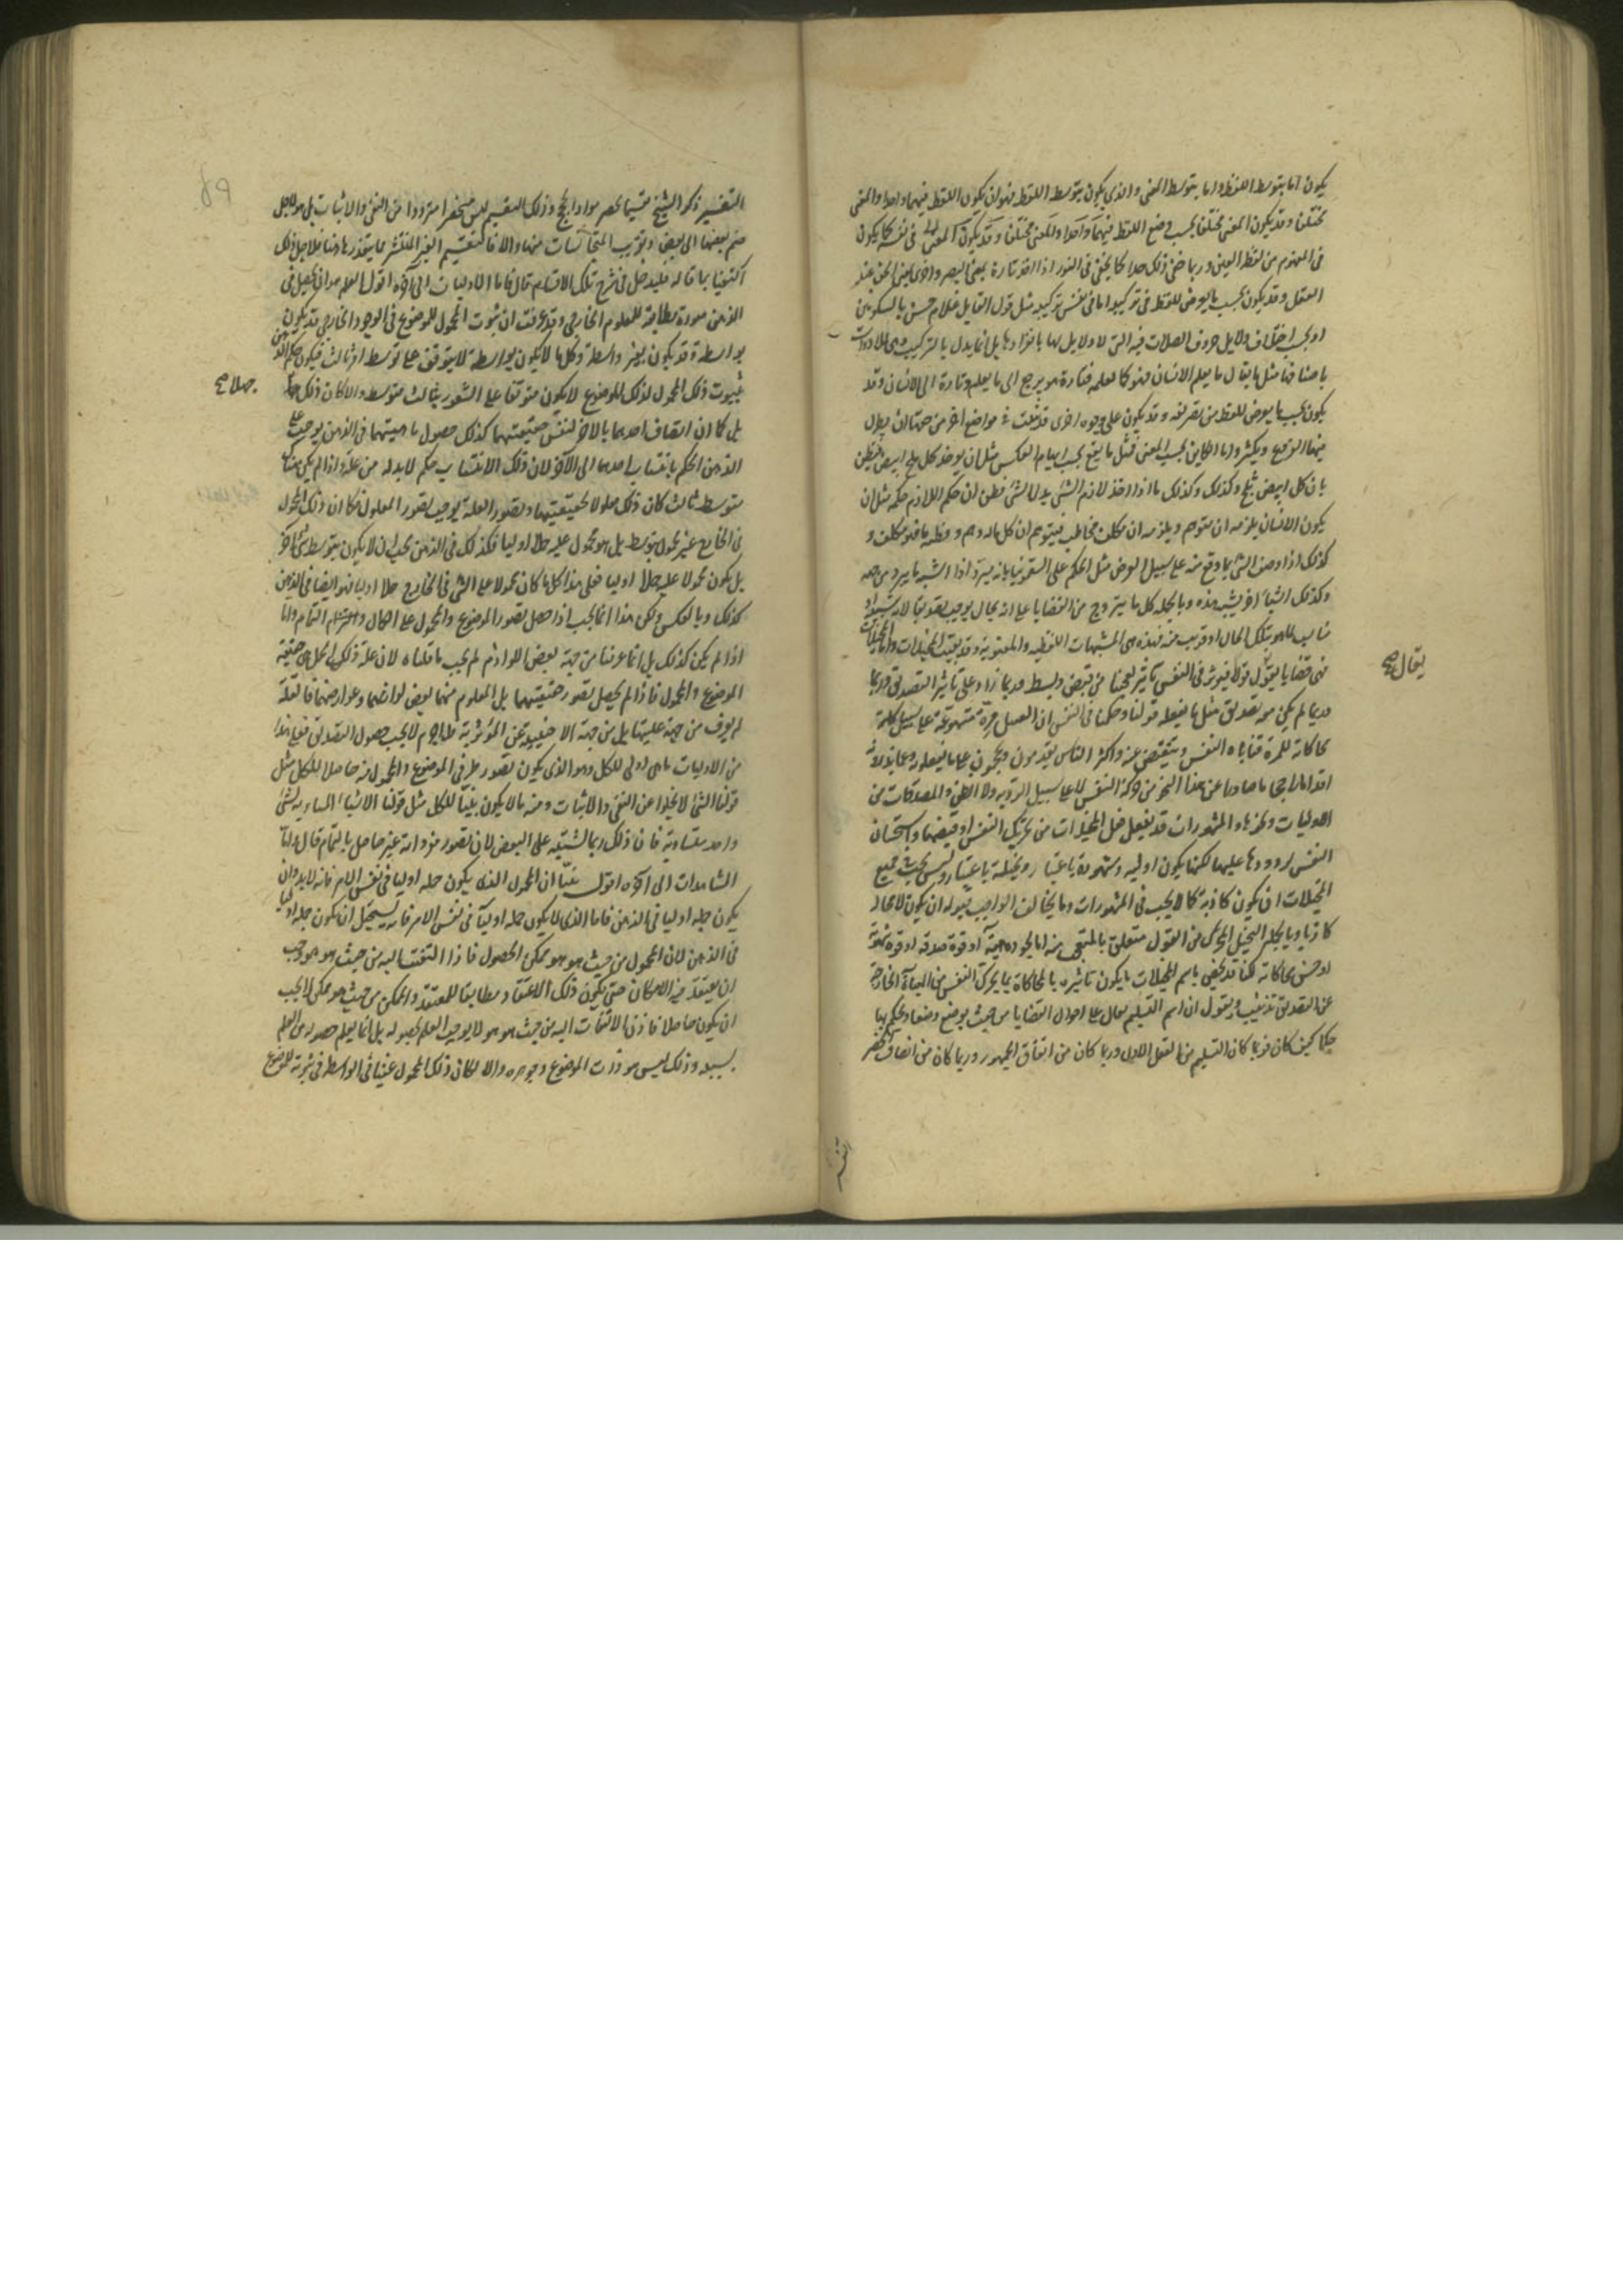 يكون اما بتوسط اللفظ واما بتوسط المعنى والذي يكون بتوسط اللفظ فهو ان يكون اللفظ فيهما واحدا والمعنى
مختلفا وقد يكون المعنى مختلفا بحسب وضع اللفظ فيهما واحدا والمعنى مختلفا وقد يكون المعنى في نفسه كما يكون
في المفهوم من لفظ العين وربما خفى ذلك جدا كما يخفى في النور اذا اخذ تارة بمعنى البصر واخرى بمعنى الحق عند
العقل وقد يكون بحسب ما يعرض للفظ في تركيبه اما في نفس تركيبه مثل قول القايل غلام حسن بالسكونين
او بحسب اختلاف دلايل حروف الصلات فيه التي لا دلايل لها بانفرادها بل انما يدل بالتركيب وهى الادوات
باصنافها مثل ما يقال ما يعلم الانسان فهو كما يعلمه فتارة هو يرجع الى ما يعلم وتارة الى الانسان وقد
يكون بحسب ما يعرض للفظ من تصريفه وقد يكون على وجوه اخرى قد بينت في مواضع اخر من حقها ان يطول
فيها الفروع ويكثر واما الكاين بحسب المعنى فمثل ما يقع بحسب ايهام العكس مثل ان يوخذ كل ثلج ابيض فيظن
بان كل ابيض ثلج وكذلك وكذلك ما اذا اخذ لازم الشئ بدل الشئ فظن ان حكم اللازم حكمه مثل ان
يكون الانسان يلزمه ان متوهم ويلزمه ان مكلف مخاطب فيتوهم ان كل ماله وهم وفطنة ما فهو مكلف و
كذلك اذا وصف الشئ بما وقع منه على سبيل العرض مثل الحكم على السقمونيا بانه يبرد اذا اشبه ما يبرد من جهة
وكذلك اشيا اخر يشبه هذه وبالجملة كل ما يتروج من القضايا على انه بحال يوجب تصديقا لانه شبيه او
مناسب لما هو بتلك الحال او قريب منه فهذه هى المشبهات اللفظيه والمعنويه وقد بقيت المخيلات واما المخيلات
فهى قضايا يقال قولا فيوثر في النفس تاثيرا عجيبا من قبض وبسط وربما زاد على تاثير التصديق وربما
وربما لم يكن معه تصديق مثل ما يفعله قولنا وحكمنا في النفس ان العسل مرة متهوعة على سبيل
محاكاته للمرة فتاباه النفس وينقبض عنه واكثر الناس يقدمون ويحجمون على ما يفعلونه وعما يذرونه
اقداما واحجاما صادرا عن هذا النحو من حركة النفس لا على سبيل الروية ولا الظن والمصدقات من
الاوليات ونحوها والمشهورات قد يفعل فعل المخيلات من تحريك النفس او قبضها واستحسان
النفس لورودها عليها لكنها يكون اولية ومشهورة باعتبار ومخيلة باعتبار وليس يجب في جميع
المخيلات ان يكون كاذبة كما لا يجب في المشهورات وما يخالف الواجب قبوله ان يكون لا محالة
كاذبا وبالجملة التخييل المحرك من القول متعلق بالتعجب منه اما لجوده هيئة او قوة صدقه او قوة شهرته
او حسن محاكاته لكنا قد نخص باسم المخيلات ما يكون تاثيره بالمحاكاة بما يحرك النفس من الهيات الخارجة
عن التصديق تذنيب ونقول ان اسم التسليم يقال على احوال القضايا من حيث يوضع وضعا ويحكم بها
حكما كيف كان فربما كان التسليم من العقل الاول وربما كان من اتفاق الجمهور وربما كان من انصاف الخصم
يقال صح
التفسير ذكر الشيخ تقسيما يحصر مواد الحجج وذلك التقسيم ليس منحصرا مترددا من النفى والاثبات بل هو لاجل
ضم بعضها الى بعض وترتيب المتجانسات منها والا فالتقسيم الغير المنتشر مما يتعذر هاهنا فلاجل ذلك
اكتفينا بما قاله فليدخل في شرح تلك الاقسام قال فاما الاوليات الى آخره اقول العلم هو ان يحصل في
الذهن صورة مطابقة للمعلوم الخارجى وقد عرفت ان ثبوت المحمول للموضوع في الوجود الخارجى قد يكون
بواسطة وقد يكون بغير واسطة وكل ما لا يكون بواسطة لا يتوقف على توسط امر ثالث فيكون حكم الذهن
بثبوت ذلك المحمول لذلك الموضوع لا يكون متوقفا على الشعور بثالث متوسط والا كان ذلك جهلا
بل كما ان اتصاف احدهما بالاخر لنفس حقيقتهما كذلك حصول ماهيتهما في الذهن يوجب على
الذهن الحكم بانتساب احدهما الى الآخر لان ذلك الانتساب حكم لابد له من علة واذا لم يكن هناك
متوسط ثالث كان ذلك معلولا لحقيقتيهما وتصور العلة يوجب تصور المعلول فكما ان ذلك المحمول
في الخارج غير محمول بتوسط بل هو محمول عليه حملا اوليا فكذلك في الذهن يجب ان لا يكون بتوسط شئ اخر
بل يكون محمولا عليه حملا اوليا فعلى هذا كل ما كان محمولا على الشئ في الخارج حملا اوليا فهو ايضا في الذهن
كذلك وبالعكس ولكن هذا انما يجب اذا حصل تصور الموضوع والمحمول على الكمال والتمام واما
اذا لم يكن كذلك بل انما عرفنا من جهة بعض اللوازم لم يجب ما قلناه لان علة ذلك الحمل هى حقيقة
الموضوع والمحمول فاذا لم يحصل تصور حقيقتيهما بل المعلوم منهما بعض لواحقهما وعوارضهما فالعلة
لم يعرف من جهة عليتها بل من جهة الاجنبية عن المؤثرية فلا جرم لا يجب حصول التصديق فعلى هذا
من الاوليات ما هى اولى للكل وهو الذى يكون تصور طرفى الموضوع والمحمول منه حاصلا للكل مثل
قولنا الشئ لا يخلوا عن النفى والاثبات ومنه ما لا يكون بينا للكل مثل قولنا الاشياء المساوية لشئ
واحد متساوية فان ذلك ربما اشتبه على البعض لان تصور مفرداته غير حاصل بالتمام قال واما
المشاهدات الى آخره اقول بينا ان المحمول الذى يكون حمله اوليا في نفس الامر فانه لابد وان
يكون حمله اوليا في الذهن فاما الذى لا يكون حمله اوليا في نفس الامر فانه يستحيل ان يكون حمله اوليا
في الذهن لان المحمول من حيث هو هو ممكن الحصول فاذا التفت اليه من حيث هو هو وجب
ان يعتقد فيه الامكان حتى يكون ذلك الاعتقاد مطابقا للمعتقد والممكن من حيث هو ممكن لا يجب
ان يكون حاصلا فاذن الالتفات اليه من حيث هو هو لا يوجب العلم بحصوله بل انما يعلم حصوله من العلم
بسببه وذلك ليس هو ذات الموضوع وجوهره والا لكان ذلك المحمول غنيا عن الواسطة في ثبوته للموضوع
جهلا صح